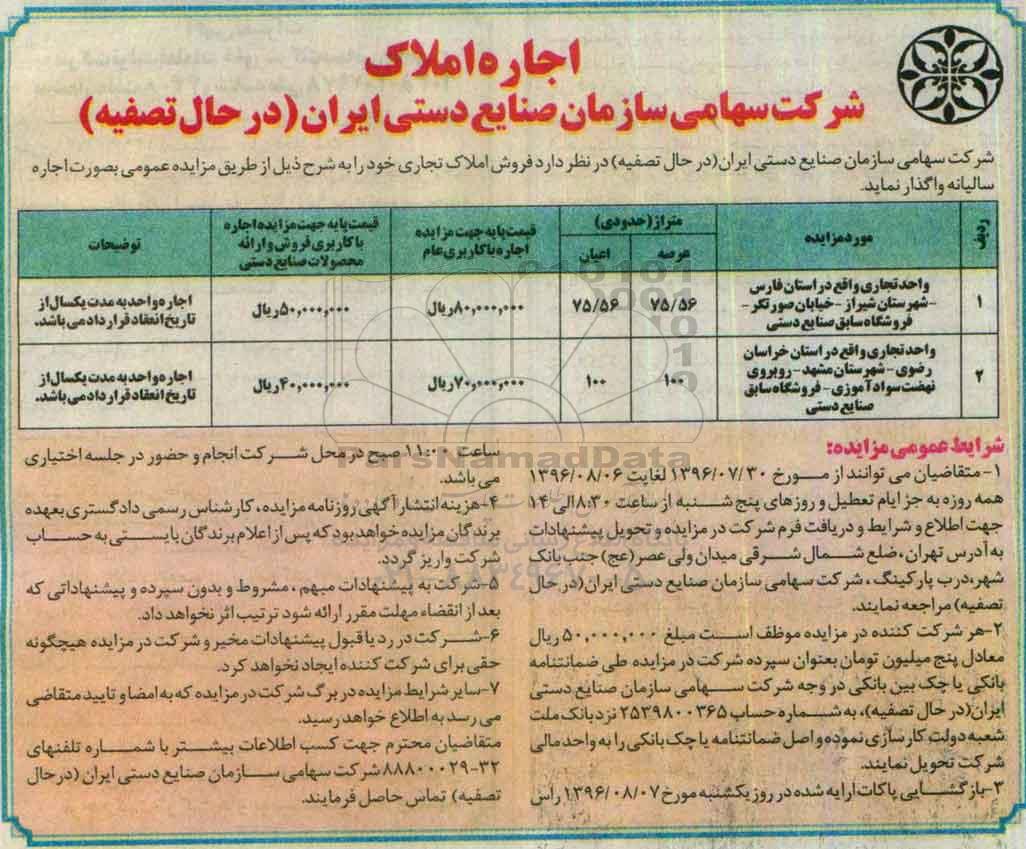 اجاره املاک
شرکت سهامی سازمان صنایع دستی ایران (در حال تصفیه)
شرکت سهامی سازمان صنایع دستی ایران(در حال تصفیه) در نظر دارد فروش املاک تجاری خود را به شرح ذیل از طریق مزایده عمومی بصورت اجاره
سالیانه واگذار نماید.
ردیف
مورد مزایده
متراژ(حدودی)
عرصه
اعیان
قیمت پایه جهت مزایده
اجاره با کاربری عام
قیمت پایه جهت مزایده اجاره
با کاربری فروش و ارائه
محصولات صنایع دستی
توضیحات
۱
واحد تجاری واقع در استان فارس
-شهرستان شیراز - خیابان صورتگر -
فروشگاه سابق صنایع دستی
۷۵/۵۶
۷۵/۵۶
۸۰,۰۰۰,۰۰۰ریال
۵۰,۰۰۰,۰۰۰ریال
اجاره واحد به مدت یکسال از
تاریخ انعقاد قرارداد می باشد.
۲
واحد تجاری واقع در استان خراسان
رضوی - شهرستان مشهد - روبروی
نهضت سوادآموزی - فروشگاه سابق
صنایع دستی
۱۰۰
۱۰۰
۷۰,۰۰۰,۰۰۰ریال
۴۰,۰۰۰,۰۰۰ریال
اجاره واحد به مدت یکسال از
تاریخ انعقاد قرارداد می باشد.
شرایط عمومی مزایده:
۱-متقاضیان می توانند از مـــورخ ۱۳۹۶/۰۷/۳۰ لغایت ۱۳۹۶/۰۸/۰۶
همه روزه به جز ایام تعطیل و روزهای پنج شنـــبه از ساعت ۸:۳۰الی ۱۴
جهت اطلاع و شرایط و دریافت فرم شرکت در مزایده و تحویل پیشنهادات
به آدرس تهران، ضلع شمال شرقی میدان ولی عصر(عج) جنب بانک
شهر،درب پارکینگ ، شرکت سهامی سازمان صنایع دستی ایران(در حال
تصفیه) مراجعه نمایند.
۲-هر شرکت کننده در مزایده موظف است مبلغ ۵۰,۰۰۰,۰۰۰ ریال
معادل پنج میلیون تومان بعنوان سپرده شرکت در مزایده طی ضمانتنامه
بانکی یا چک بین بانکی در وجه شرکت سهامی سازمان صنایع دستی
ایران(در حال تصفیه)، به شماره حساب ۲۵۳۹۸۰۰۳۶۵ نزد بانک ملت
شعبه دولت کارسازی نموده و اصل ضمانتنامه یا چک بانکی را به واحد مالی
شرکت تحویل نمایند.
۳-بازگشایی پاکات ارایه شده در روز یکشنبه مورخ ۱۳۹۶/۰۸/۰۷ راس
ساعت ۱۱:۰۰ صبح در محل شرکت انجام و حضور در جلسه اختیاری
می باشد.
۴-هزینه انتشار آگهی روزنامه مزایده، کارشناس رسمی دادگستری بعهده
برندگان مزایده خواهد بود که پس از اعلام برندگان بایستی به حساب
شرکت واریز گردد.
۵-شرکت به پیشنهادات مبهم ، مشروط و بدون سپرده و پیشنهاداتی که
بعد از انقضاء مهلت مقرر ارائه شود ترتیب اثر نخواهد داد.
۶-شرکت در رد یا قبول پیشنهادات مخیر و شرکت در مزایده هیچگونه
حقی برای شرکت کننده ایجاد نخواهد کرد.
۷-سایر شرایط مزایده در برگ شرکت در مزایده که به امضا و تایید متقاضی
می رسد به اطلاع خواهد رسید.
متقاضیان محترم جهت کسب اطلاعات بیشتر با شماره تلفنهای
۸۸۸۰۰۰۲۹-۳۲شرکت سهامی سازمان صنایع دستی ایران (در حال
تصفیه) تماس حاصل فرمایند.
ParsNamadData